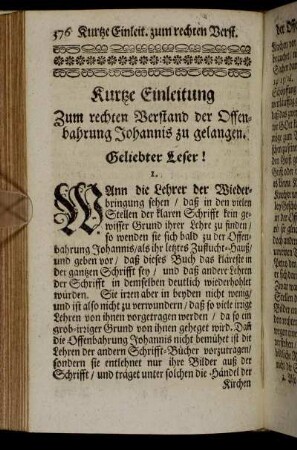 376 Kurtze Einleit. zum rechten Verst.
Kurtze Einleitung
Zum rechten Verstand der Offen-
bahrung Johannis zu gelangen.
Geliebter Leser!
1.
WAnn die Lehrer der Wieder-
bringung sehen / daß in den vielen
Stellen der klaren Schrifft kein ge-
wisser Grund ihrer Lehre zu finden /
so wenden sie sich bald zu der Offen-
bahrung Johannis / als ihr letztes Zuflucht-Hauß /
und geben vor / daß dieses Buch das kläreste in
der gantzen Schrifft sey / und daß andere Lehren
der Schrifft in demselben deutlich wiederhohlet
würden. Sie irren aber in beyden nicht wenig /
und ist also nicht zu verwundern / daß so viele irrige
Lehren von ihnen vorgetragen werden / da so ein
grob-irriger Grund von ihnen geheget wird. Daß
die Offenbahrung Johannis nicht bemühet ist die
Lehren der andern Schrifft-Bücher vorzutragen /
sondern sie entlehnet nur ihre Bilder auß der
Schrifft / und träget unter solchen die Händel der
Kirchen